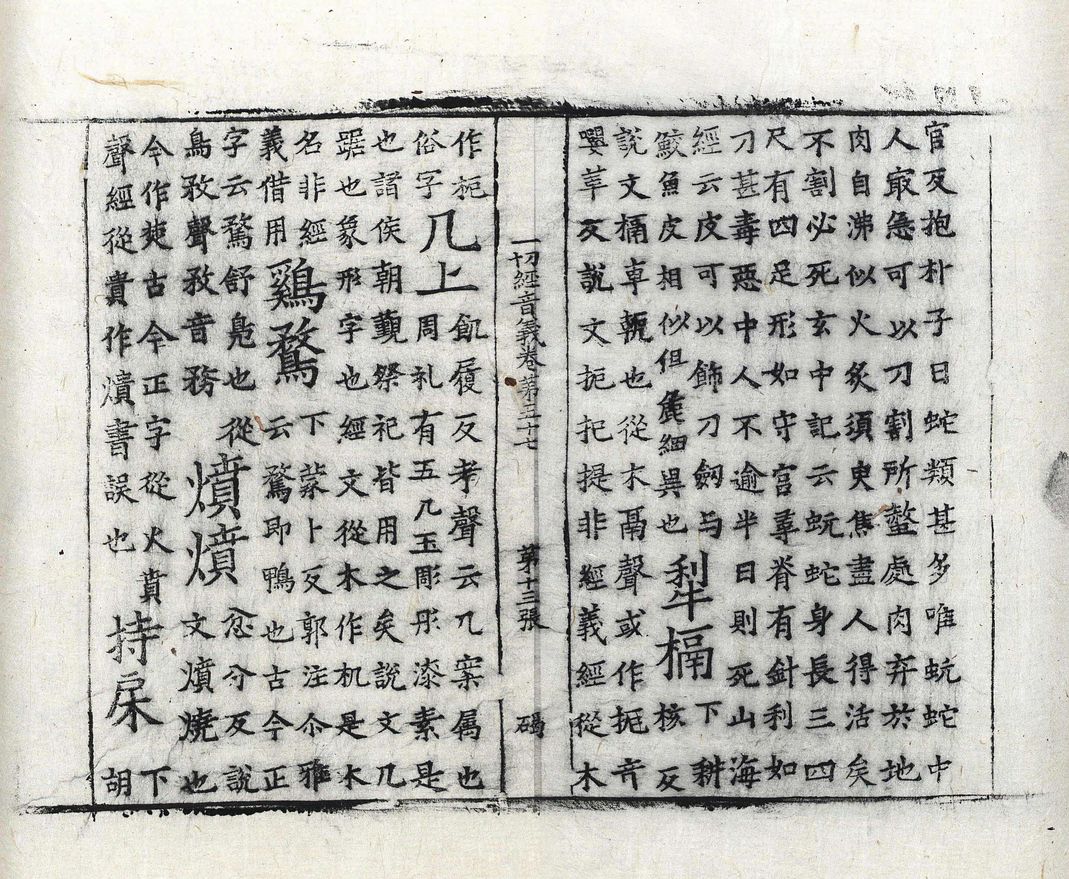 官反抱朴子曰蛇類甚多唯蚖蛇中
人㝡急可以刀割所螫處肉弃於地
肉自沸似火炙須臾焦盡人得活矣
不割必死玄中記云蚖蛇身長三四
尺有四足形如守宮尋脊有針利如
刀甚毒惡中人不逾半日則死山海
經云皮可以飾刀劒与
鮫魚皮相似但麁細異也
犁槅
下耕
核反
說文槅車軶也從木鬲聲或作扼音
嬰革反說文扼把提非經義經從木
一切經音義卷第三十七 第十三張 碣
作枙
俗字
几上
飢履反考聲云几案属也
周礼有五几玉彫彤漆素是
也諸侯朝覲祭祀皆用之矣說文几
踞也象形字也經文從木作机是木
名非經
義借用
鷄鶩
下蒙卜反郭注尒雅
云鶩即鴨也古今正
字云鶩舒鳬也從
鳥敄聲敄音務
燌燌
忿分反說
文燌燒也
今作焚古今正字從火賁
聲經從貴作燌書誤也
持戽
下
胡